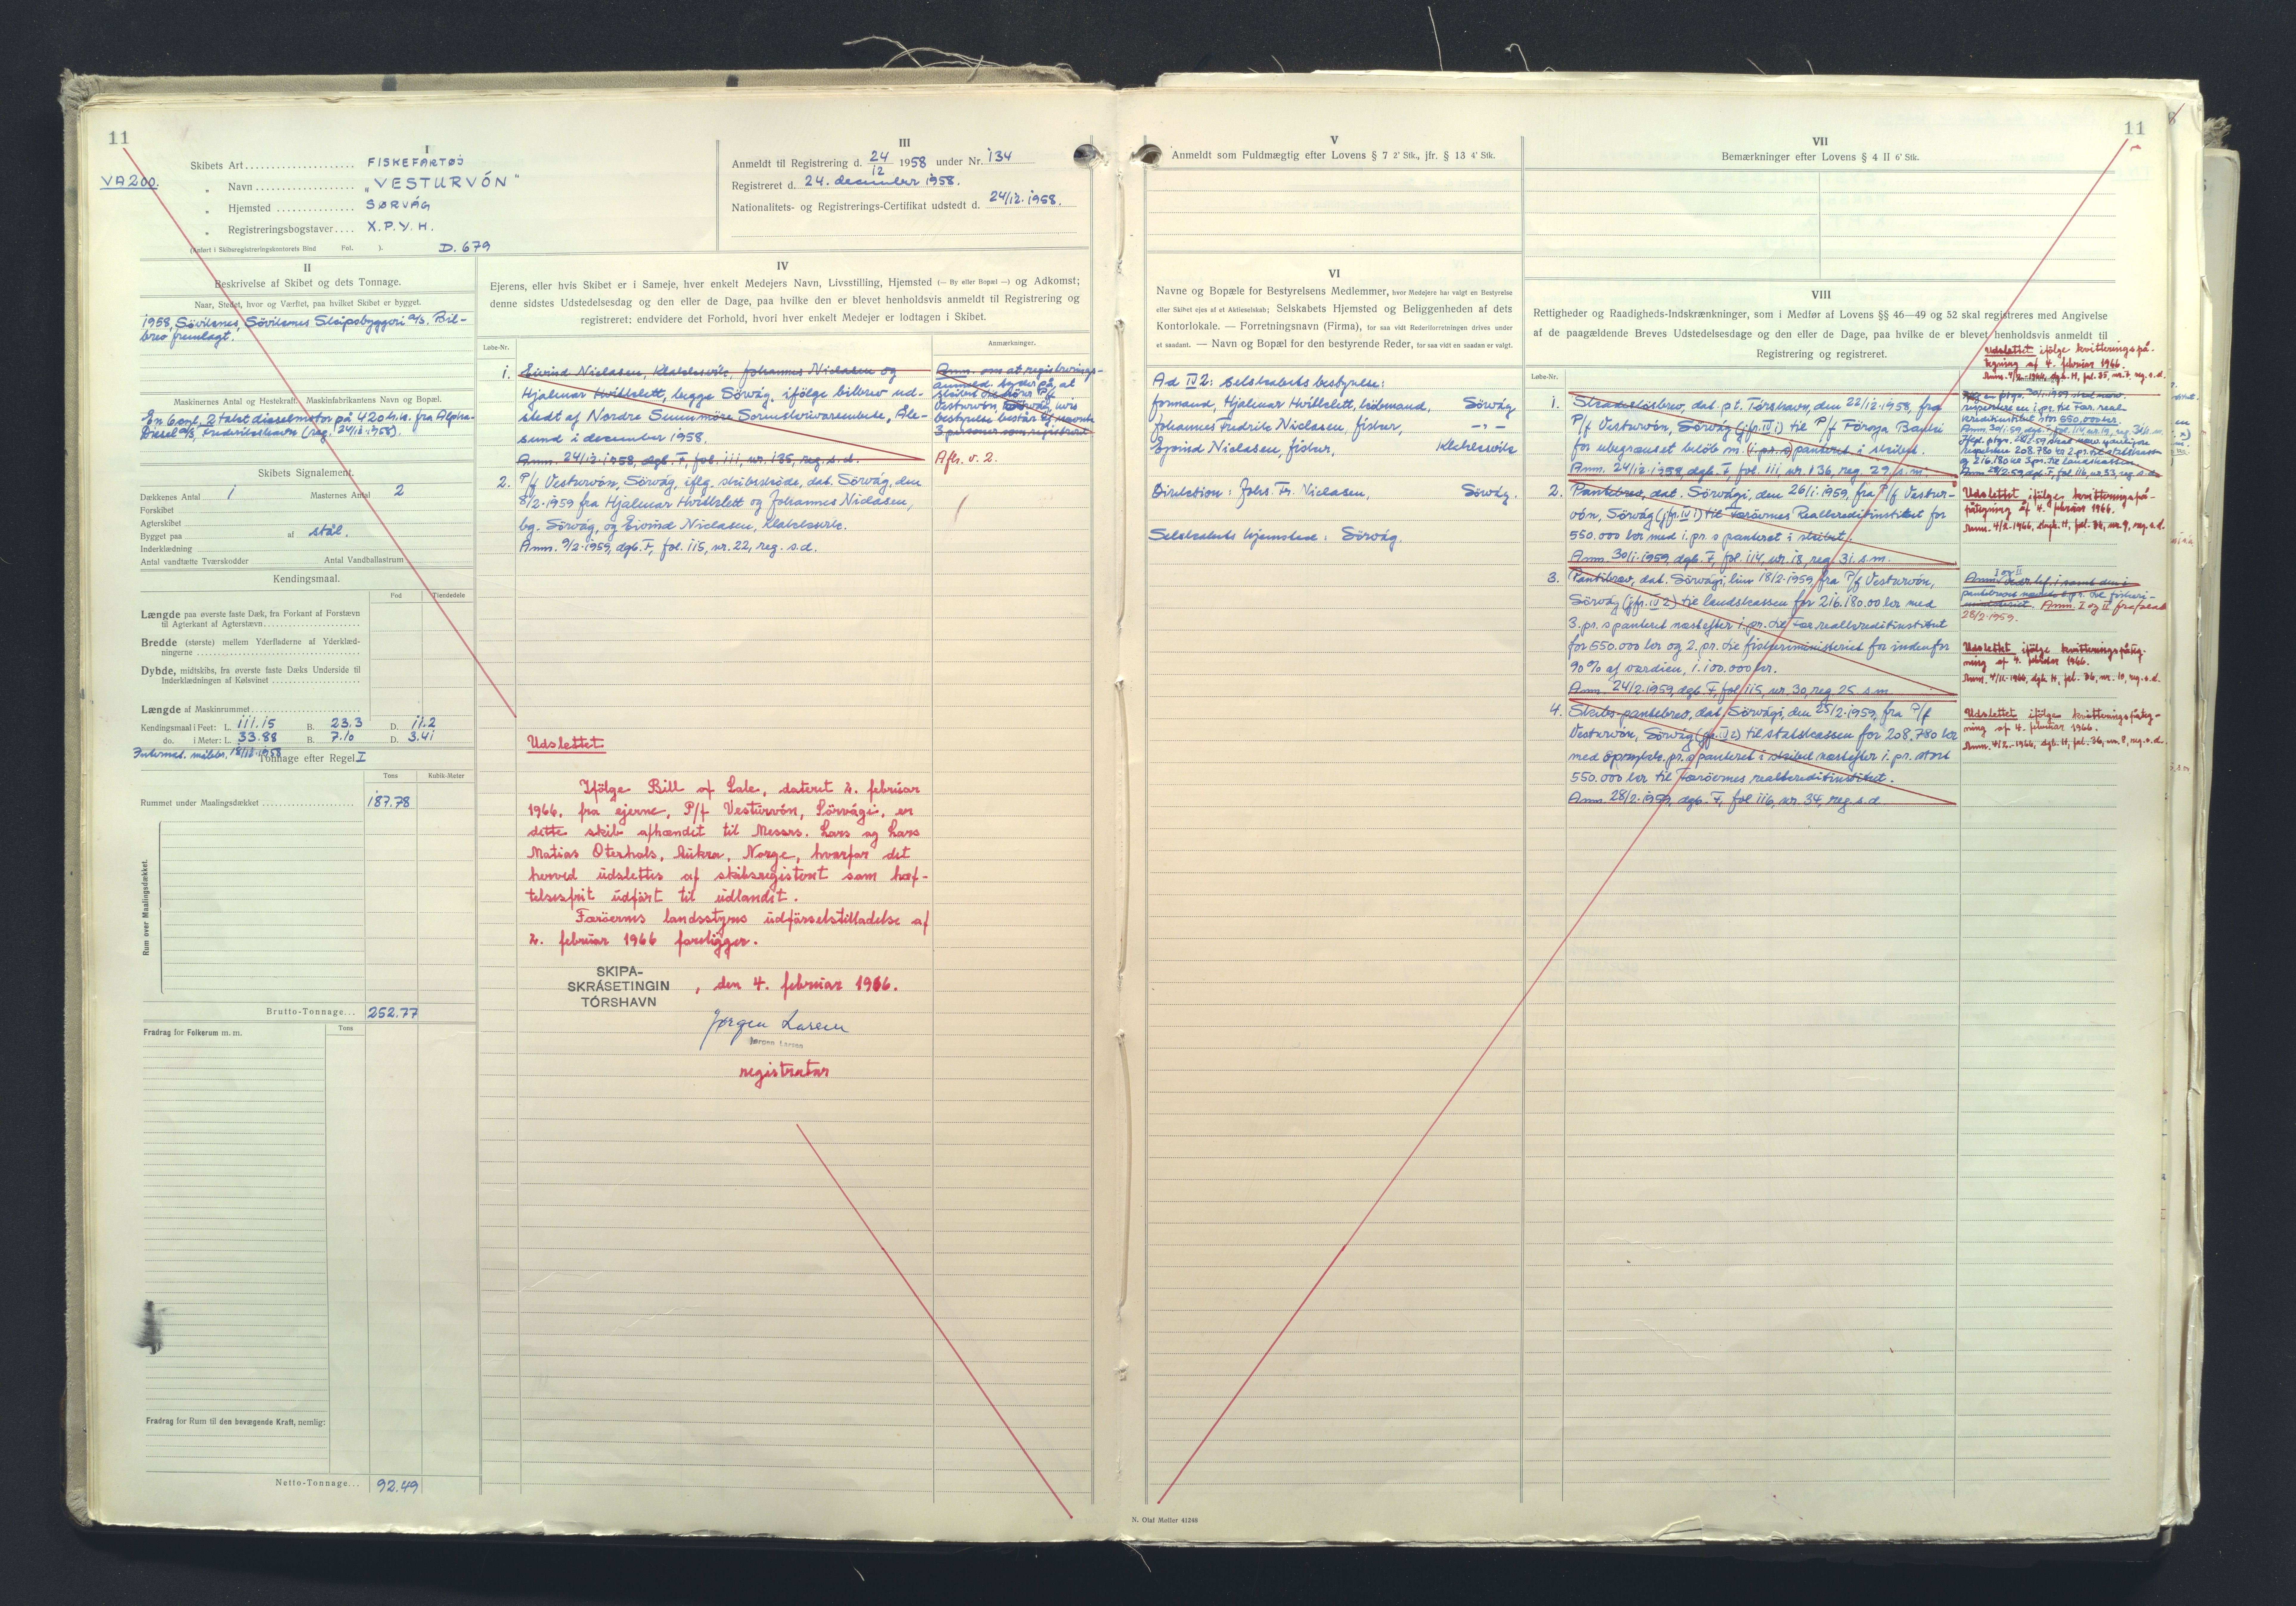 11
VA200.
I
Skibets Art.................... FISKEFARTØJ
" Navn.................. "VESTURVÓN"
" Hjemsted.............. SØRVÁG
" Registreringsbogstaver.... X.P.Y.H.
(Anført i Skibsregistreringskontorets Bind Fol. ). D. 679
II
Beskrivelse af Skibet og dets Tonnage.
Naar, Stedet, hvor og Værftet, paa hvilket Skibet er bygget.
1958, Söviknes, Söviknes Skipsbyggeri a/s. Bil-
brev fremlagt.
Maskinernes Antal og Hestekraft. Maskinfabrikantens Navn og Bopæl.
En 6 cyl. 2 takst dieselmotor på 420 h.k. fra Alpha-
Diesel a/s, Frederikshavn (reg. 24/12-1958).
Skibets Signalement.
Dækkenes Antal 1 Masternes Antal 2
Forskibet
Agterskibet
Bygget paa af stål.
Inderklædning
Antal vandtætte Tværskodder Antal Vandballastrum
Kendingsmaal.
Fod Tiendedele
Længde paa øverste faste Dæk, fra Forkant af Forstævn
til Agterkant af Agterstævn
Bredde (største) mellem Yderfladerne af Yderklæd-
ningerne
Dybde, midtskibs, fra øverste faste Dæks Underside til
Inderklædningen af Kølsvinet
Længde af Maskinrummet
Kendingsmaal i Feet: L. 111.15 B. 23.3 D. 11.2
do. i Meter: L. 33.88 B. 7.10 D. 3.41
Internat. målebr. 18/12-1958
Tonnage efter Regel I
Tons Kubik-Meter
Rummet under Maalingsdækket 187.78
Rum over Maalingsdækket.
Brutto-Tonnage... 252.77
Fradrag for Folkerum m. m. Tons
Fradrag for Rum til den bevægende Kraft, nemlig:
Netto-Tonnage... 92.49
III
Anmeldt til Registrering d. 24/12 1958 under Nr. 134
Registreret d. 24. december 1958.
Nationalitets- og Registrerings-Certifikat udstedt d. 24/12-1958.
IV
Ejerens, eller hvis Skibet er i Sameje, hver enkelt Medejers Navn, Livsstilling, Hjemsted (— By eller Bopæl —) og Adkomst;
denne sidstes Udstedelsesdag og den eller de Dage, paa hvilke den er blevet henholdsvis anmeldt til Registrering og
registreret; endvidere det Forhold, hvori hver enkelt Medejer er lodtagen i Skibet.
Løbe-Nr. Anmærkninger.
1. Eivind Niclasen, Klaksvik, Johannes Niclasen og
Hjalmar Hvitklett, begge Sörvág, ifölge bilbrev ud-
stedt af Nordre Sunnmöre Sorenskrivarembete, Ale-
sund i december 1958.
Anm. 24/12-1958, dgb. F, fol. 111, nr. 135, reg. s.d.
Anm. om at registrerings-
Afl. v. 2.
2. P/f Vesturvón, Sörvág, iflg. skibsskøde, dat. Sörvág, den
8/2-1959 fra Hjalmar Hvitklett og Johannes Niclasen,
bg. Sörvág, og Eivind Niclasen, Klaksvik.
Anm. 9/2-1959, dgb. F, fol. 115, nr. 22, reg. s.d.
Udslettet
Ifølge Bill of Sale, dateret 2. februar
1966, fra ejerne, P/f Vesturvón, Sörvági, er
dette skib afhændet til Messrs. Lars og Lars
Matias Oterhals, Aukra, Norge, hvorfor det
herved udslettes af skibsregistret som hæf-
telsesfrit udført til udlandet.
Færöernes landsstyres udførselstilladelse af
2. februar 1966 foreligger.
SKIPA-
SKRÁSETINGIN
TÓRSHAVN
, den 4. februar 1966.
Jørgen Larsen
Jørgen Larsen
registrator
11
V
Anmeldt som Fuldmægtig efter Lovens § 7 2' Stk., jfr. § 13 4' Stk.
VI
Navne og Bopæle for Bestyrelsens Medlemmer, hvor Medejere har valgt en Bestyrelse
eller Skibet ejes af et Aktieselskab; Selskabets Hjemsted og Beliggenheden af dets
Kontorlokale. — Forretningsnavn (Firma), for saa vidt Rederiforretningen drives under
et saadant. — Navn og Bopæl for den bestyrende Reder, for saa vidt en saadan er valgt.
Ad IV 2: Selskabets bestyrelse:
formand, Hjalmar Hvitklett, købmand, Sörvág
Johannes Fredrik Niclasen, fisker, —"—
Ejvind Niclasen, fisker, Klaksvik
Direktion: Johs. Fr. Niclasen, Sörvág.
Selskabets hjemsted: Sörvág.
VII
Bemærkninger efter Lovens § 4 II 6' Stk.
VIII
Rettigheder og Raadigheds-Indskrænkninger, som i Medfør af Lovens §§ 46—49 og 52 skal registreres med Angivelse
af de paagældende Breves Udstedelsesdage og den eller de Dage, paa hvilke de er blevet henholdsvis anmeldt til
Registrering og registreret.
Løbe-Nr.
1. Skadesløsbrev, dat. p.t. Tórshavn, den 22/12-1958, fra
P/f Vesturvón, Sörvág (jfr. IV 1) til P/f Føroya Banki
for ubegrænset beløb m. (1. pr. s) panteret i skibet.
Anm. 24/12-1958, dgb. F, fol. 111 nr. 136, reg. 29/ s.m.
Udslettet ifölge kvitteringspå-
tegning af 4. februar 1966.
Anm. 4/2-1966, dgb. H, fol. 35, nr. 7, reg. s.d.
2. Pantebrev, dat. Sörvági, den 26/1-1959, fra P/f Vestur-
vón, Sörvág (jfr. IV 1) til Færöernes Realkreditinstitut for
550.000 kr med 1. pr. s panteret i skibet.
Anm. 30/1-1959, dgb. F, fol. 114, nr. 18, reg. 31. s.m.
Udslettet ifölge kvitteringspå-
tegning af 4. februar 1966.
Anm. 4/2-1966, dagb. H, fol. 36, nr. 9, reg. s.d.
3. Pantebrev, dat. Sörvági, hin 18/2-1959 fra P/f Vesturvón,
Sörvág (jfr. IV 2) til landskassen for 216.180.00 kr med
3. pr. s panteret næstefter 1. pr. til Fær. realkreditinstitut
for 550.000 kr og 2. pr. til fiskeriministeriet for indenfor
90% af værdien, 1.100.000 kr.
Anm. 24/2-1959, dgb. F, fol 115, nr. 30, reg. 25. s.m.
Anm. I og II frafaldt
28/2-1959.
Udslettet ifölge kvitteringspåteg-
ning af 4. februar 1966.
Anm. 4/2-1966, dgb. H, fol. 36, nr. 10, reg. s.d.
4. Skibs-pantebrev, dat. Sörvági, den 25/2-1959, fra P/f
Vesturvón, Sörvág (jfr. IV 2) til statskassen for 208.780 kr
med oprykk. pr. s panteret i skibet næstefter 1. pr. stort
550.000 kr til Færöernes realkreditinstitut.
Anm. 28/2-1959, dgb. F, fol 116, nr. 34, reg s.d.
Udslettet ifölge kvitteringspåteg-
ning af 4. februar 1966.
Anm. 4/2-1966, dgb. H, fol. 36, nr. 8, reg. s.d.
N. Olaf Møller 41246